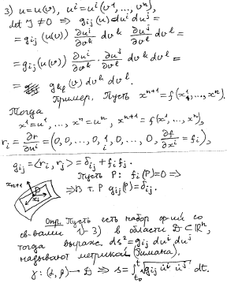 3) u = u(v), uⁱ = uⁱ(v¹, ..., vⁿ),
det J ≠ 0 ⇒ gᵢⱼ(u) duⁱ duʲ =
= gᵢⱼ(u(v)) ∂uⁱ/∂vᵏ dvᵏ ∂uʲ/∂vˡ dvˡ =
= gᵢⱼ(u(v)) ∂uⁱ/∂vᵏ · ∂uʲ/∂vˡ dvᵏ dvˡ =
= gₖₗ(v) dvᵏ dvˡ.
Пример. Пусть xⁿ⁺¹ = f(x¹, ..., xⁿ).
Тогда
x¹ = u¹, ..., xⁿ = uⁿ, xⁿ⁺¹ = f(x¹, ..., xⁿ),
rᵢ = ∂r/∂uⁱ = (0, 0, ..., 0, 1, 0, ..., 0, ∂f/∂xⁱ = fᵢ),
i
gᵢⱼ = <rᵢ, rⱼ> = δᵢⱼ + fᵢ fⱼ.
Пусть P: fᵢ(P) = 0 ⇒
⇒ В т. P gᵢⱼ(P) = δᵢⱼ.
xⁿ⁺¹
Опр. Пусть есть набор ф-ий со
св-вами 1-3) в области D ⊂ ℝⁿ,
тогда выраж. ds² = gᵢⱼ duⁱ duʲ
называют метрикой (Римана).
γ: (α, β) → D ⇒ s = ∫ √(gᵢⱼ u̇ⁱ u̇ʲ) dt.